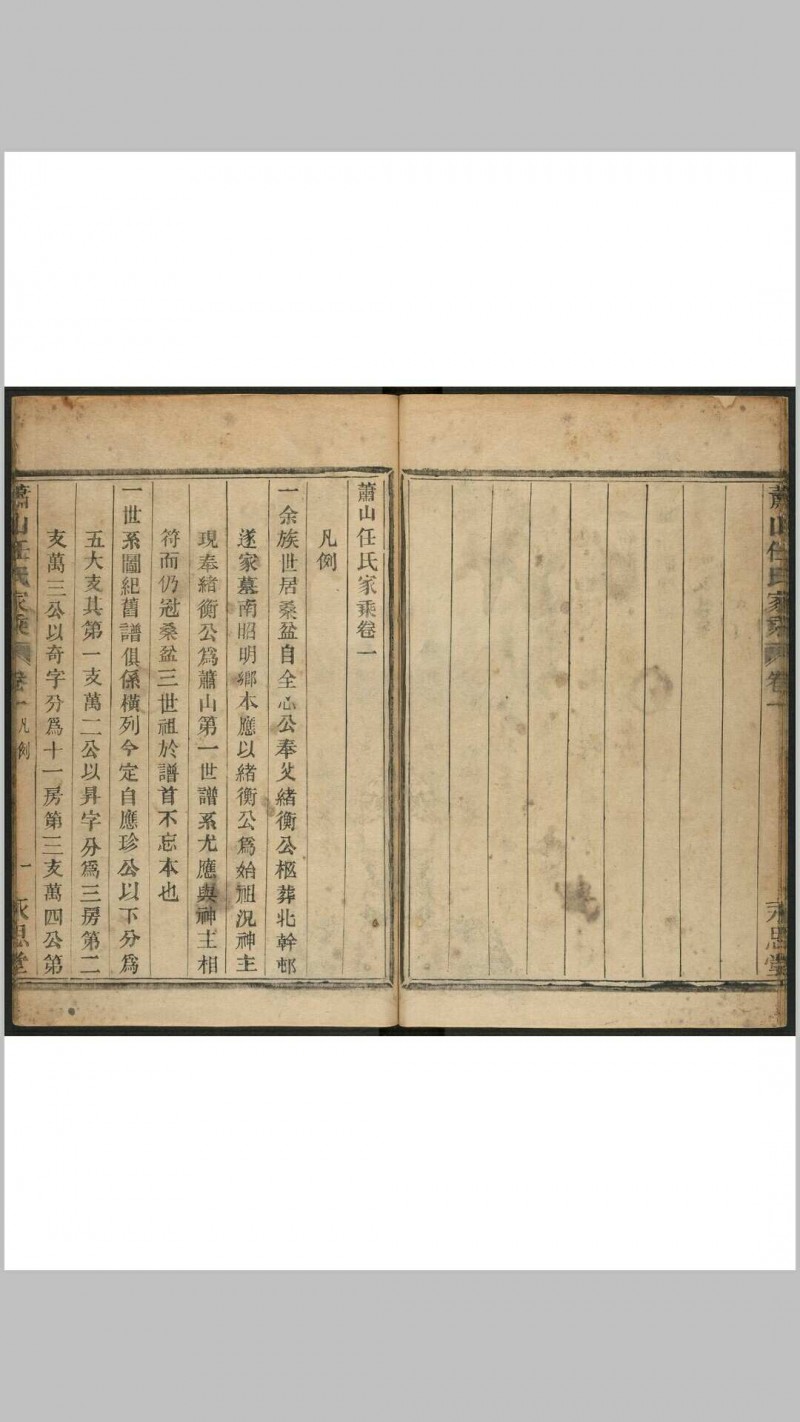 蕭山任氏家乘 卷一 永思堂
蕭山任氏家乘卷一
凡例
一余族世居桑盆自全心公奉父緒衡公柩葬北幹邨
遂家墓南昭明鄉本應以緒衡公爲始祖況神主
現奉緒衡公爲蕭山第一世譜系尤應與神主相
符而仍冠桑盆三世祖於譜首不忘本也
一世系圖紀舊譜俱係橫列今定自應珍公以下分爲
五大支其第一支萬二公以昇字分爲三房第二
支萬三公以奇字分爲十一房第三支萬四公第
蕭山任氏家乘 卷一 凡例 一 永思堂